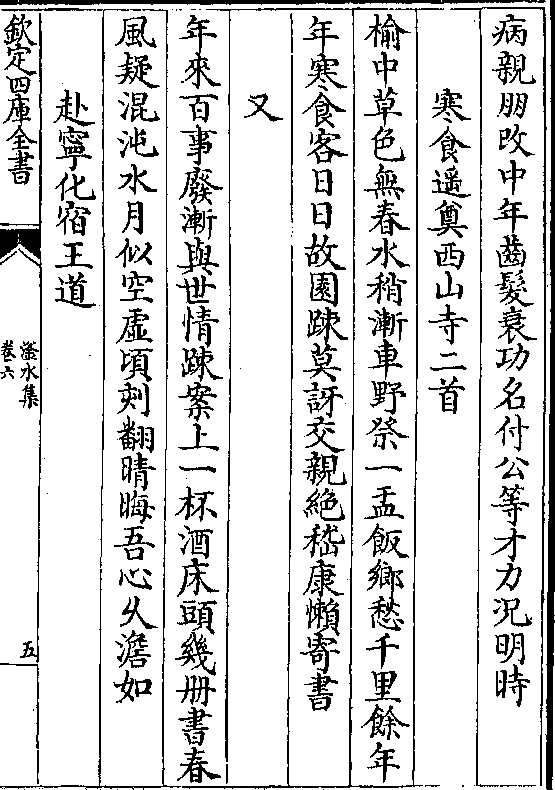 病親朋改中年齒髮衰功名付公等才力況明時
寒食遥奠西山寺二首
榆中草色無春水稍漸車野祭一盂飯鄉愁千里餘年
年寒食客日日故園疎莫訝交親絶嵇康懶寄書
又
年來百事廢漸與世情疎案上一杯酒床頭幾册書春
風疑混沌水月似空虚頃刻翻晴晦吾心乆澹如
赴寧化宿王道
欽定四庫全書
滏水集
卷六
五